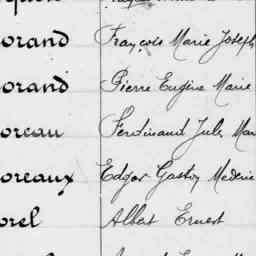 orand François Marie Joseph
orand Pierre Eugène Marie
oreau Ferdinand Jules Mar
oreaux Edgar Gaston Mederic
orel Albert Ernest